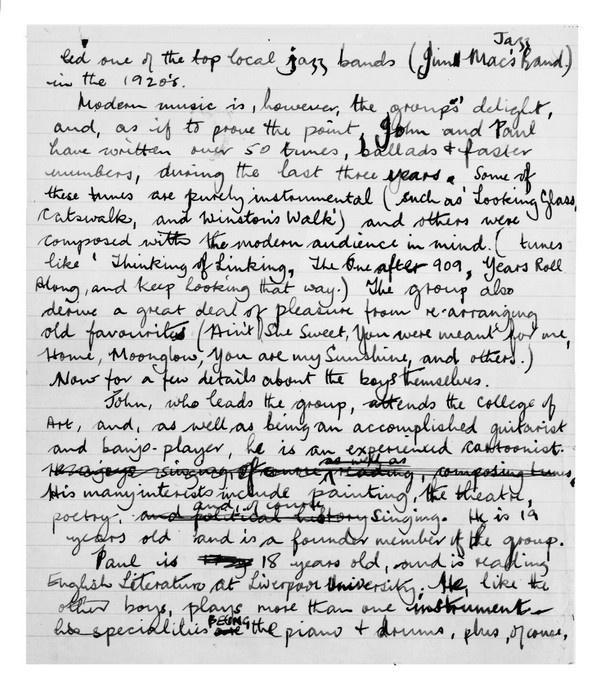 Jazz
led one of the top local jazz bands (Jim Mac's Band.)
in the 1920's.
Modern music is, however, the group's delight,
and, as if to prove the point, John and Paul
have written over 50 tunes, ballads & faster
numbers, during the last three years. Some of
these tunes are purely instrumental (such as 'Looking Glass,
Catswalk, and Winston's Walk') and others were
composed with the modern audience in mind. (tunes
like 'Thinking of Linking, The One after 909, Years Roll
Along, and Keep looking that way.) The group also
derive a great deal of pleasure from re-arranging
old favourites (Ain't She Sweet, You were meant for me,
Home, Moonglow, You are my Sunshine, and others.)
Now for a few details about the boys themselves.
John, who leads the group, attends the college of
Art, and, as well as being an accomplished guitarist
and banjo-player, he is an experienced cartoonist.
as well as
He enjoys singing, of course reading, composing tunes,
His many interests include painting, the theatre,
and, of course,
poetry, and political history singing. He is 19
years old and is a founder member of the group.
Paul is 18 years old, and is reading
English Literature at Liverpool University. He, like the
other boys, plays more than one instrument -
his specialities BEING the piano & drums, plus, of course,